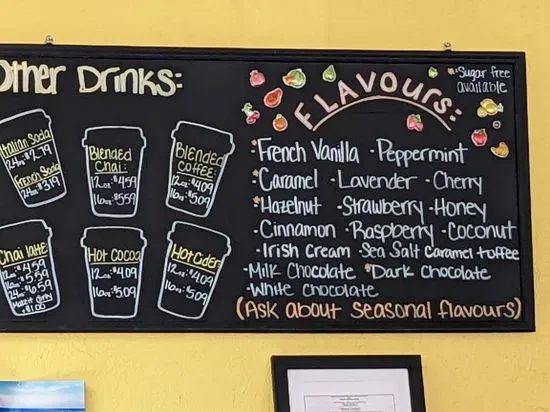 Other Drinks:
Italian Soda
24oz: $2.79
French Soda
24oz: $3.19
Blended
Chai:
12oz: $4.59
16oz: $5.59
Blended
Coffee:
12oz: $4.09
16oz: $5.09
Chai latte:
12oz: $4.59
16oz: $5.59
24oz: $6.59
Make it dirty
+$1.00
Hot Cocoa
12oz: $4.09
16oz: $5.09
Hot Cider:
12oz: $4.09
16oz: $5.09
Flavours:
*Sugar free
available
*French Vanilla -Peppermint
*Caramel -Lavender -Cherry
*Hazelnut -Strawberry -Honey
-Cinnamon -Raspberry -Coconut
-Irish Cream -Sea Salt Caramel toffee
-Milk Chocolate *Dark Chocolate
-White Chocolate
(Ask about seasonal flavours)